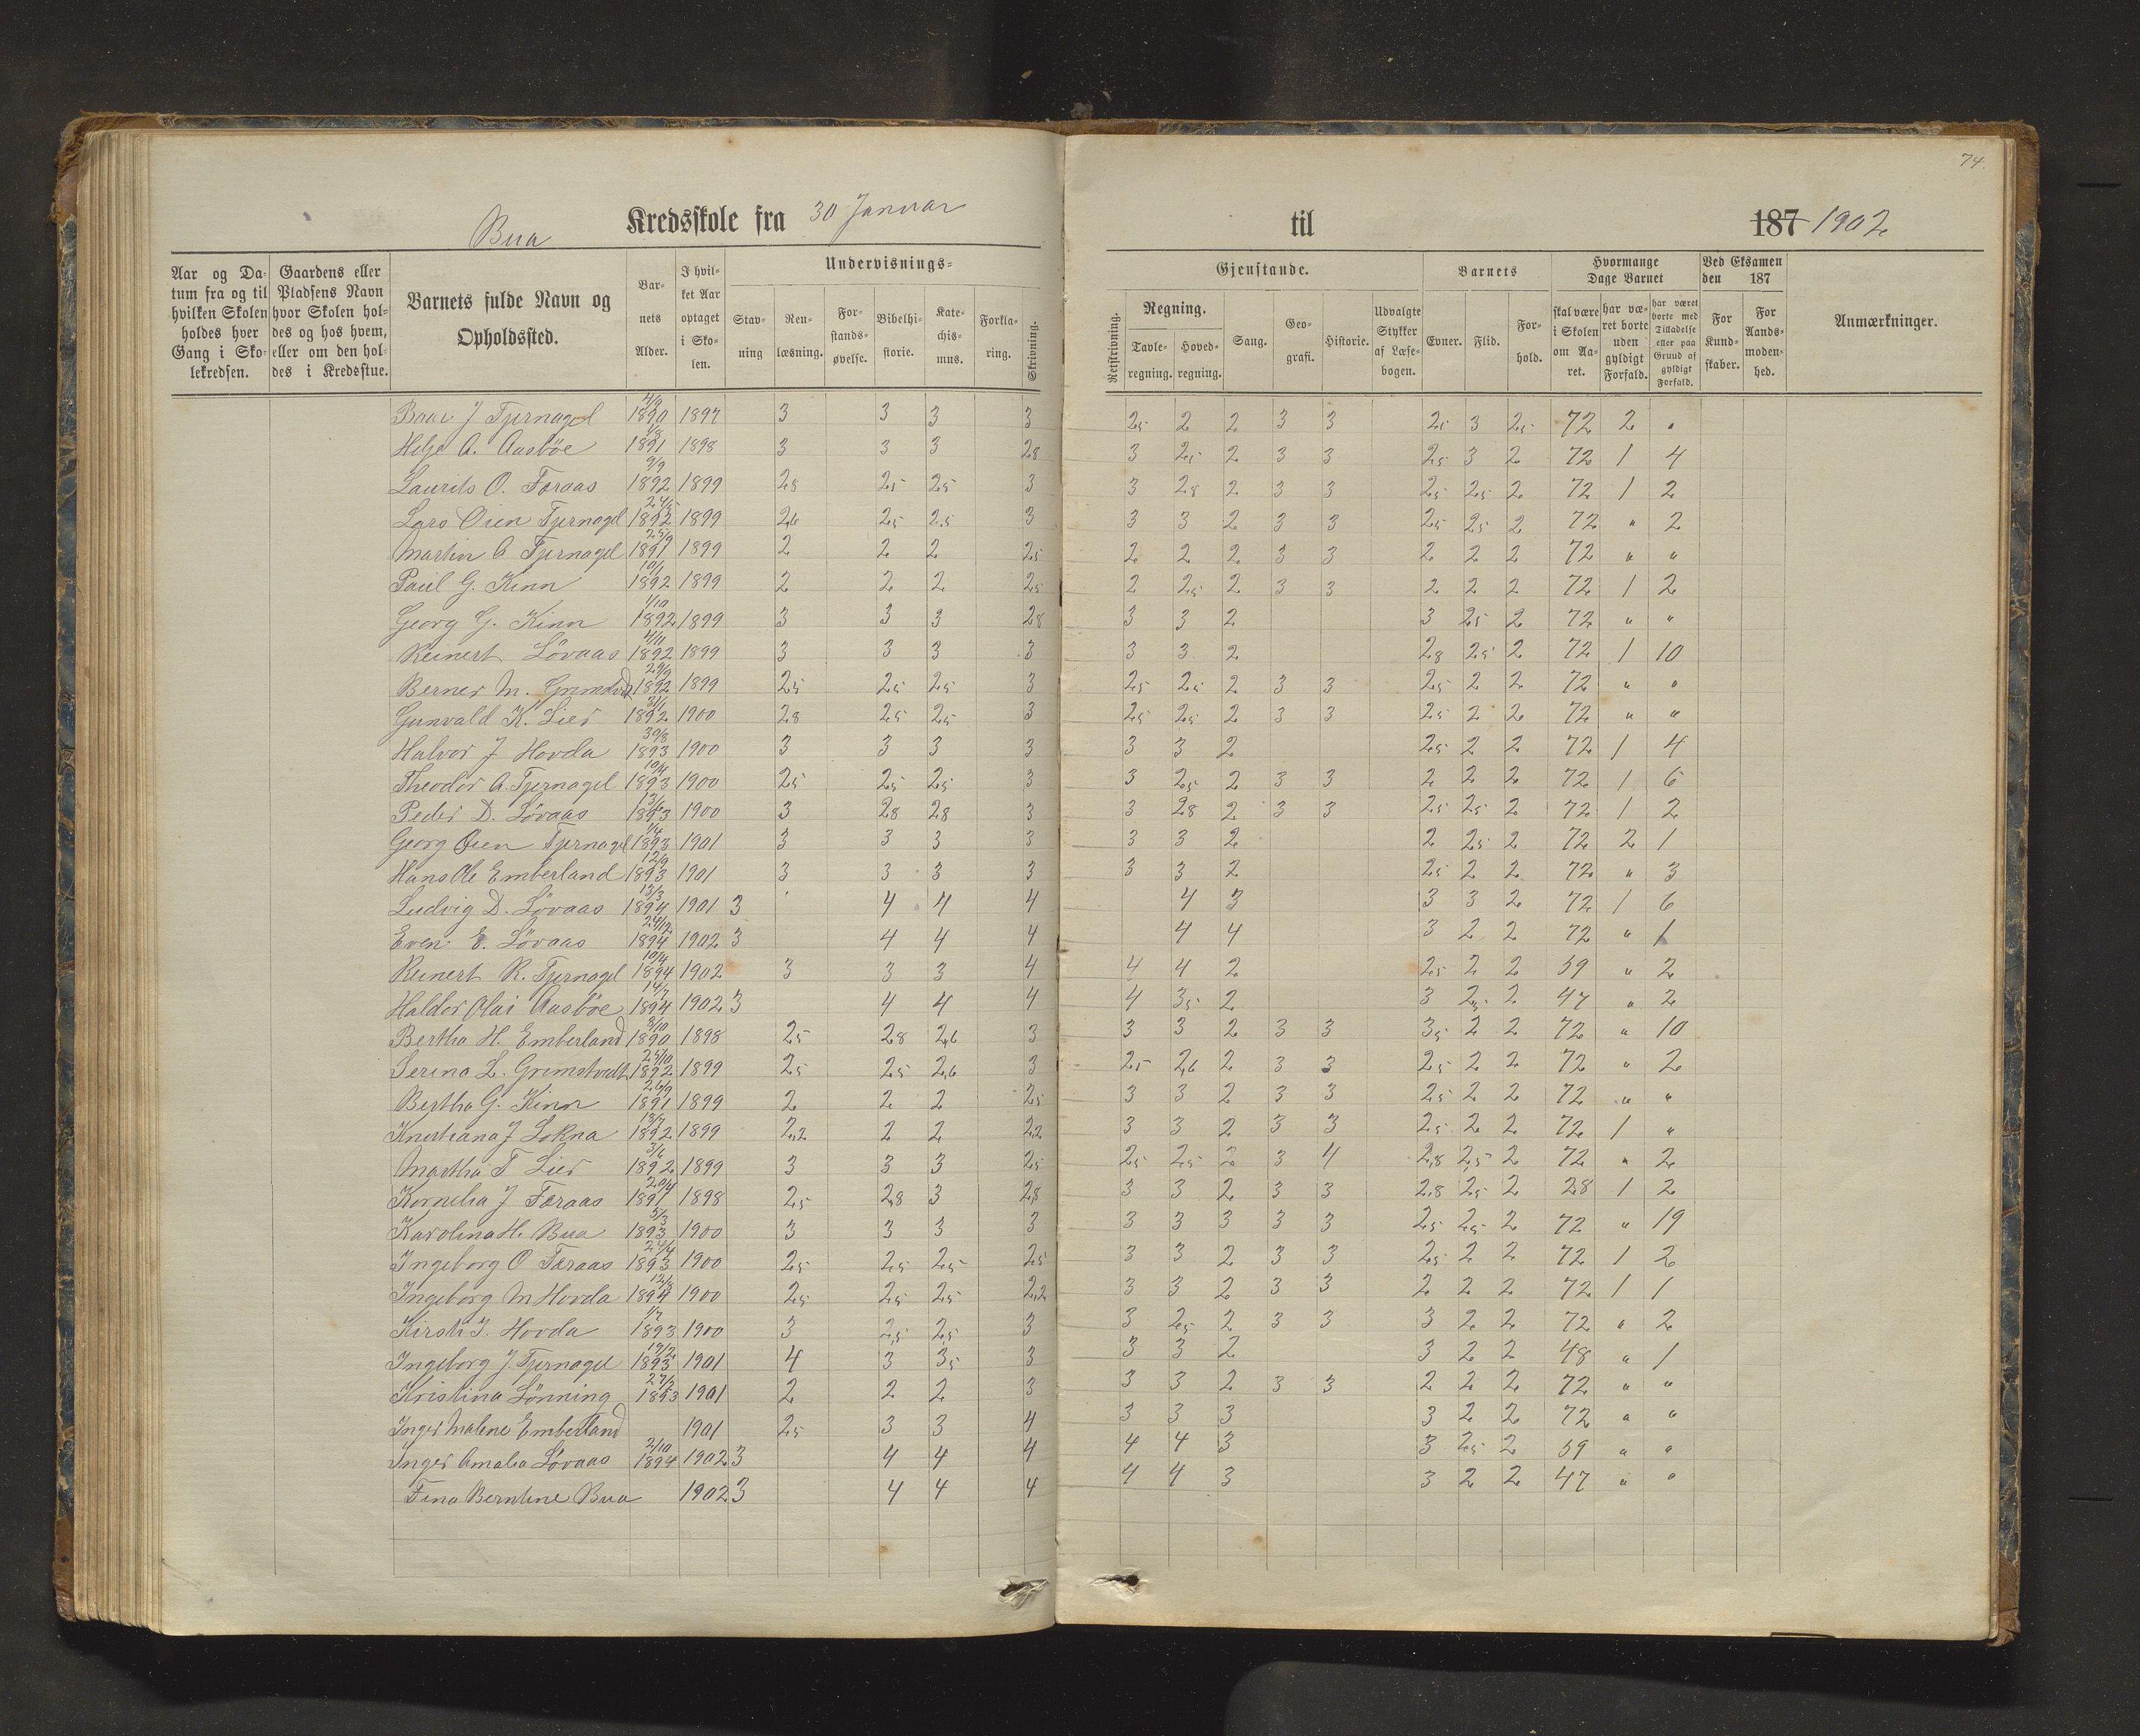 74.
Bua Kredsskole fra 30 Januar til 187 1902
Aar og Datum fra og til hvilken Skolen holdes hver Gang i Skolekredsen. Gaardens eller Pladsens Navn hvor Skolen holdes og hos hvem, eller om den holdes i Kredsstue. Barnets fulde Navn og Opholdssted. Barnets Alder. I hvilket Aar optaget i Skolen. Undervisnings-Gjenstande. Barnets Hvormange Dage Barnet Ved Eksamen den 187 Anmærkninger.
Stavning Renlæsning. Forstandsøvelse. Bibelhistorie. Katechismus. Forklaring. Skrivning. Retskrivning. Regning. Tavleregning. Hovedregning. Sang. Geografi. Historie. Udvalgte Stykker af Læsebogen. Evner. Flid. Forhold. skal være i Skolen om Aaret. har været borte uden gyldigt Forfald. har været borte med Tilladelse eller paa Grund af gyldigt Forfald. For Kundskaber. For Aandsmodenhed.
Baar J Tjernagel 4/9 1890 1897 3 3 3 3 25 2 2 3 3 25 3 25 72 2 "
Helje A. Aasböe 1/8 1891 1898 3 3 3 28 3 25 2 3 3 25 3 2 72 1 4
Laurits O. Færaas 9/9 1892 1899 28 25 25 3 3 28 2 3 3 25 25 2 72 1 2
Lars Oien Tjernagel 24/5 1892 1899 26 25 25 3 3 3 2 3 3 25 25 2 72 " 2
Martin A Tjernagel 25/9 1891 1899 2 2 2 25 2 2 2 3 3 2 2 2 72 " "
Paul G. Kinn 10/1 1892 1899 2 2 2 25 2 25 2 3 3 2 2 2 72 1 2
Georg G. Kinn 1/10 1892 1899 3 3 3 28 3 3 2 3 25 2 72 " "
Reinert Lövaas 4/11 1892 1899 3 3 3 3 3 3 2 28 25 2 72 1 10
Berner M. Grimstvedt 29/9 1892 1899 25 25 25 3 25 25 2 3 3 25 2 2 72 " "
Gunvald K. Lier 31/1 1892 1900 28 25 25 3 25 25 2 3 3 25 2 2 72 " "
Halvor J Hovda 30/8 1893 1900 3 3 3 3 3 3 2 25 2 2 72 1 4
Theodor A. Tjernagel 10/4 1893 1900 25 25 25 3 3 25 2 3 3 2 2 2 72 1 6
Peder D. Lövaas 1893 1900 3 28 28 3 3 28 2 3 3 25 25 2 72 1 2
Georg Oien Tjernagel 1/4 1893 1901 3 3 3 3 3 3 2 2 25 2 72 2 1
Hans Ole Emberland 12/9 1893 1901 3 3 3 3 3 3 2 25 2 2 72 " 3
Ludvig D. Lövaas 13/3 1894 1901 3 4 4 4 4 3 3 3 2 72 1 6
Even E. Lövaas 24/12 1894 1902 3 4 4 4 4 4 3 2 2 72 " 1
Reinert R. Tjernagel 10/4 1894 1902 3 3 3 4 4 4 2 25 2 2 59 " 2
Haldor Olai Aasböe 14/7 1894 1902 3 4 4 4 4 35 2 3 25 2 47 " 2
Bertha H. Emberland 3/10 1890 1898 25 28 2,6 3 3 3 2 3 3 35 2 2 72 " 10
Serina L. Grimstvedt 25/10 1892 1899 25 25 2,6 3 25 2,6 2 3 3 25 2 2 72 " 2
Bertha G. Kinn 26/9 1891 1899 2 2 2 25 3 3 2 3 3 25 2 2 72 " "
Kristiana J Lokna 1892 1899 2,2 2 2 2,2 3 3 2 3 3 25 2 2 72 1 "
Martha T Lier 3/6 1892 1899 3 3 3 25 25 25 2 3 4 2,8 2,5 2 72 " 2
Kornelia J Færaas 20/4 1891 1898 2,5 2,8 3 2,8 3 3 2 3 3 2,8 25 2 28 1 2
Karolina H. Bua 5/3 1893 1900 3 3 3 3 3 3 3 3 3 25 25 2 72 " 19
Ingeborg O Færaas 24/4 1893 1900 25 25 25 25 3 3 2 3 3 25 2 2 72 1 2
Ingeborg M Hovda 1894 1900 25 25 25 2,2 3 3 2 3 3 2 2 2 72 1 1
Kirsti J. Hovda 1/7 1893 1900 3 2,5 25 3 3 25 2 3 3 3 2 2 72 " 2
Ingeborg J Tjernagel 19/2 1893 1901 4 3 35 3 3 3 2 3 2 2 48 " 1
Kristina Lönning 1893 1901 2 2 2 3 3 3 2 3 3 2 2 2 72 " "
Inger Malene Emberland 1901 25 3 3 4 3 3 3 3 2 2 72 " "
Inger Amalia Lövaas 2/10 1894 1902 3 4 4 4 4 4 3 3 25 2 59 " "
Tina Berntine Bua 1902 3 4 4 4 4 4 3 3 2 2 47 " "